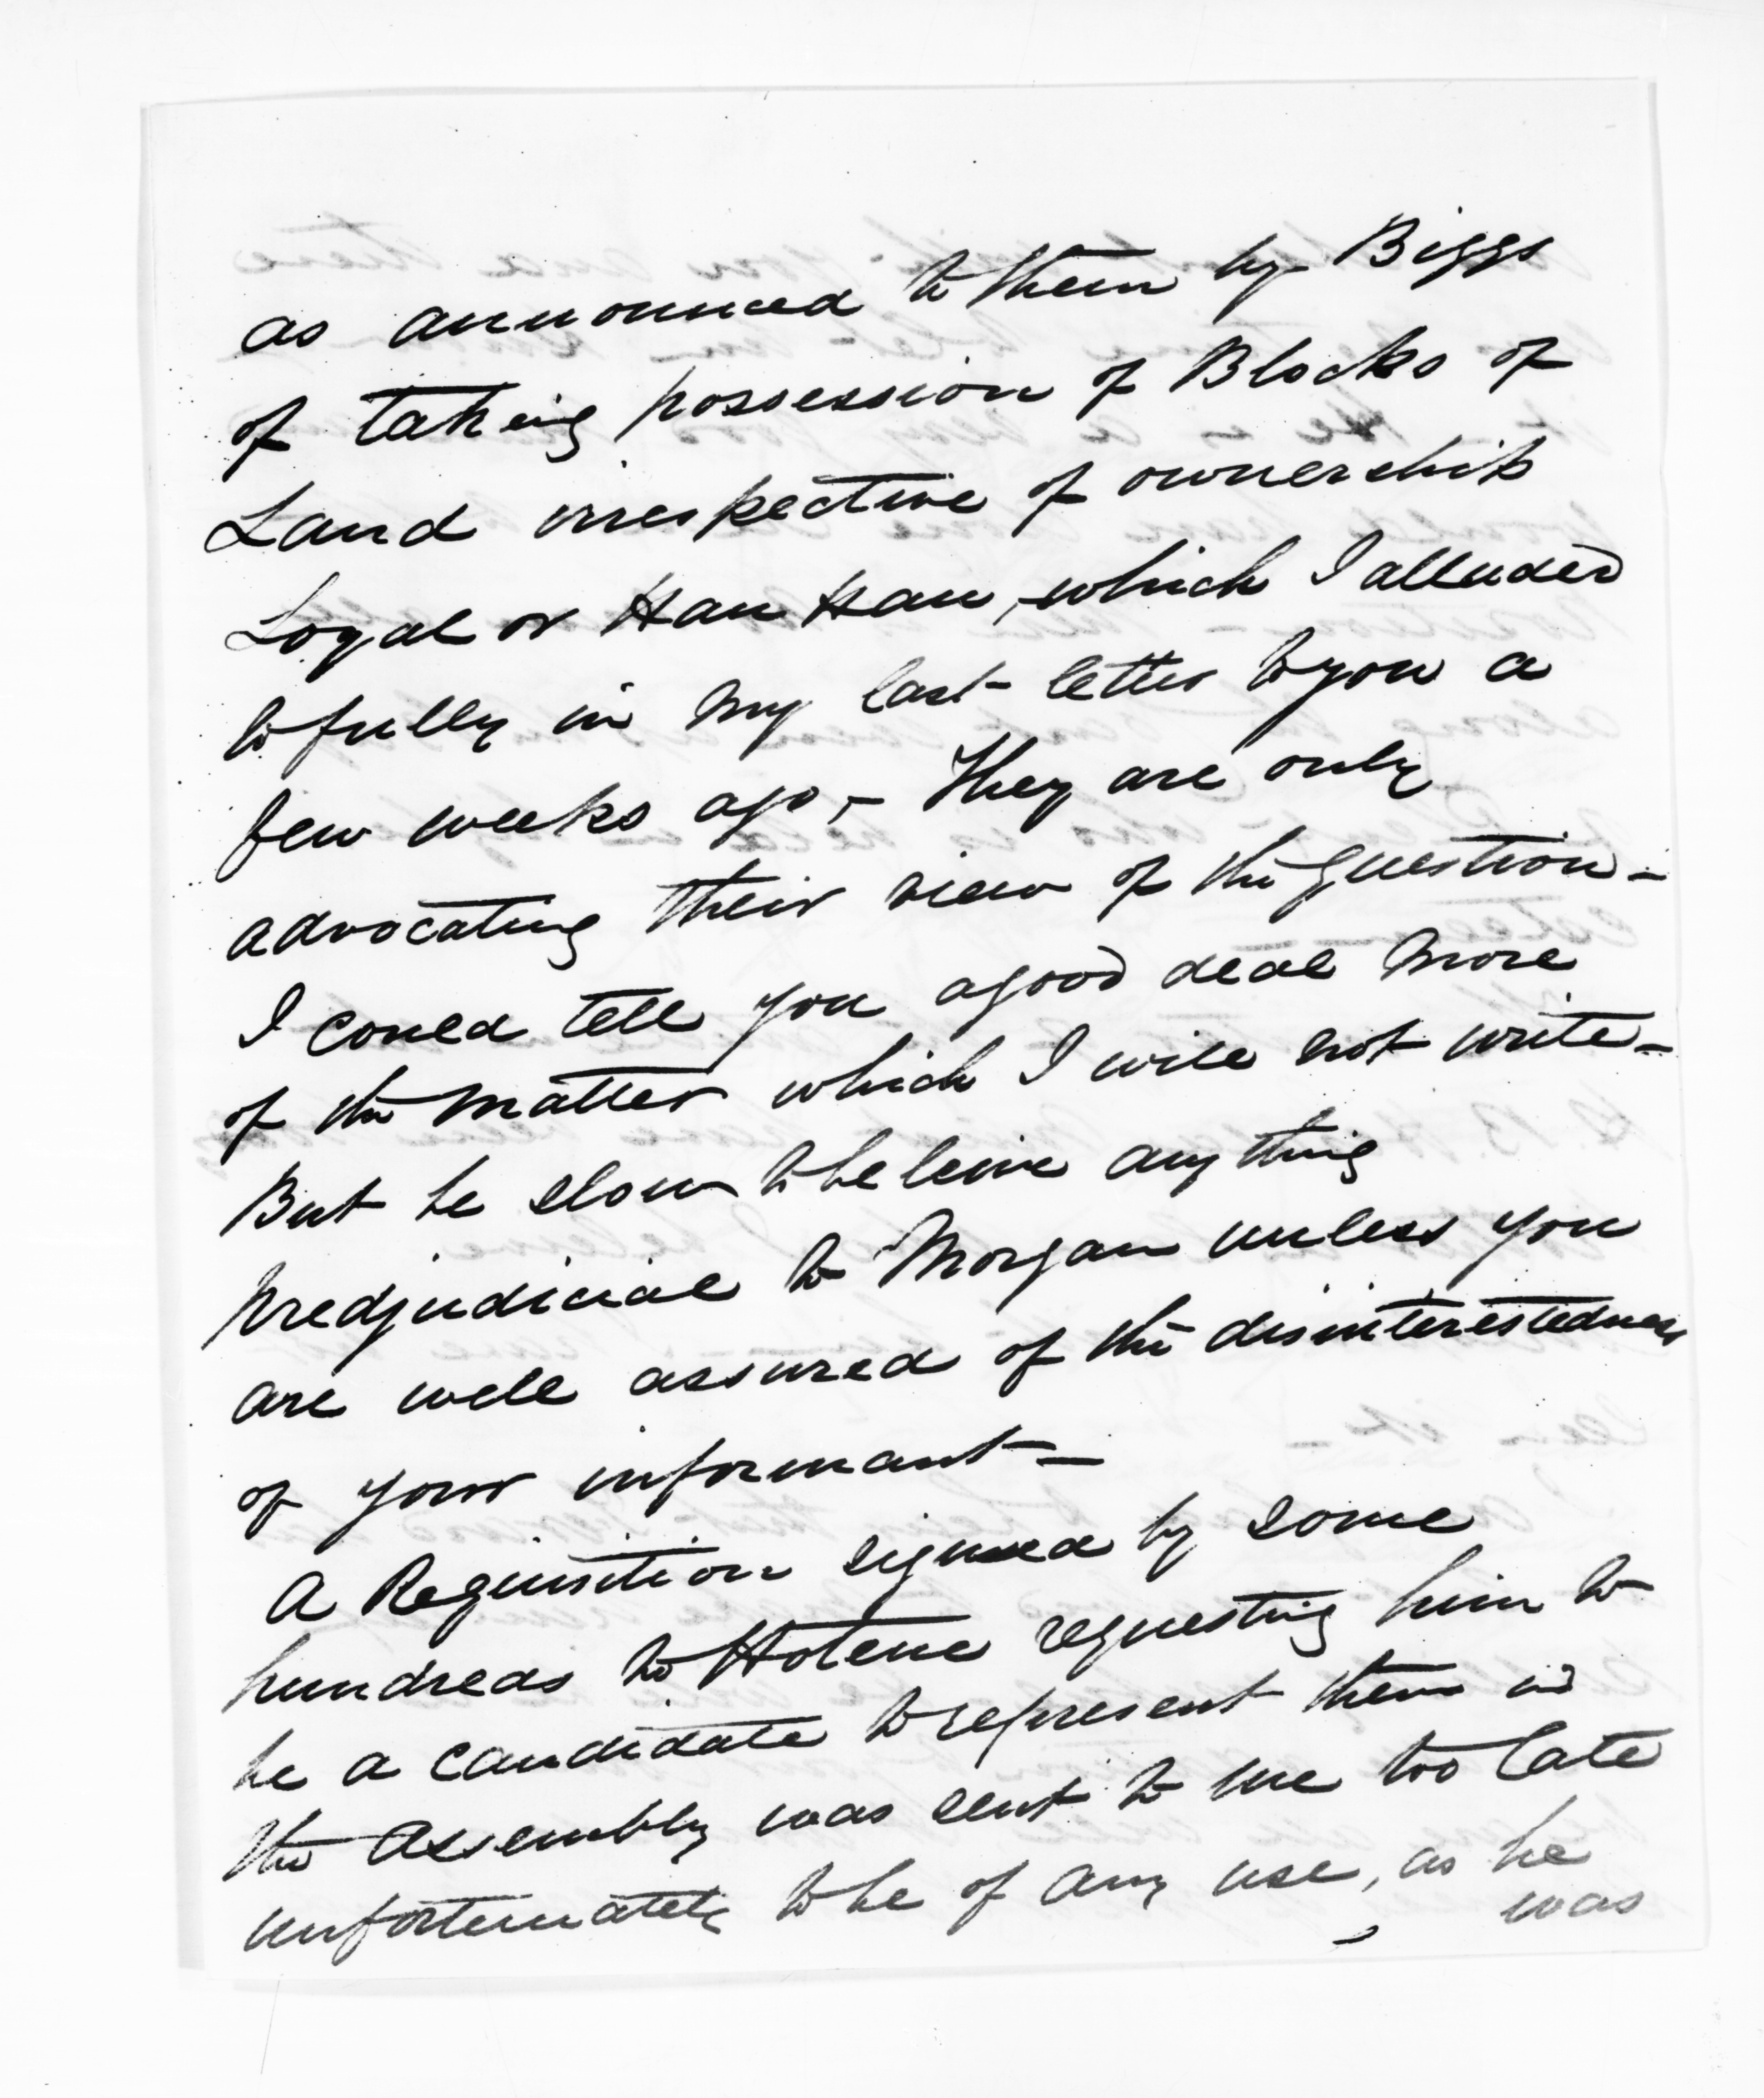 as announced to them by Biggs
of taking possession of Blocks of
Land irrespective of ownership
Loyal or Hau Hau, which I alluded
to fully in my last letter to you a
few weeks ago, - They are only
advocating their view of the question -
I could tell you a good deal more
of the matter which I will not write -
But be slow to beleive any thing
predjudicial to Morgan unless you
are well assured of the disinterestedness
of your informant -
A Requisition signed by some
hundreds to Hotene requesting him to
be a candidate to represent them in
the Assembly was sent to me too late
unfortunately to be of any use, as he
was